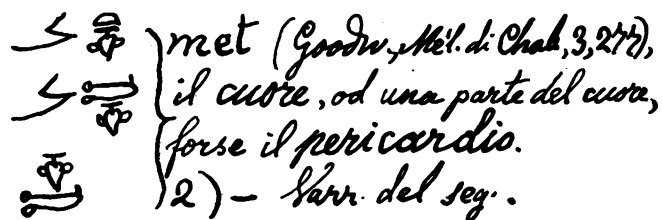 met (Goodw., Mél. di Chab., 3, 277),
il cuore, od una parte del cuore,
forse il pericardio.
2) - Varr. del seg.